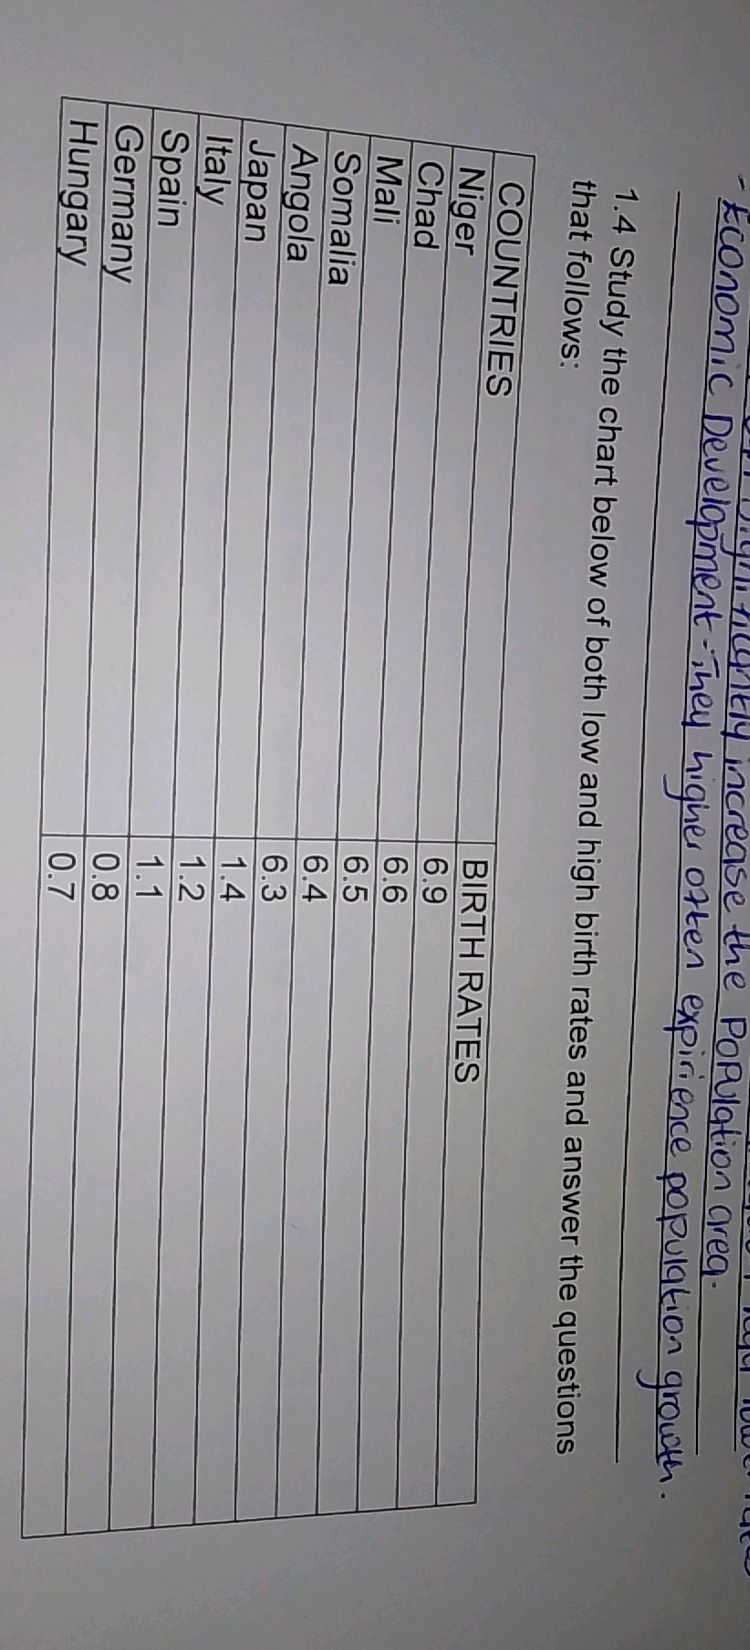 increase the Population area.
- Economic Development - They higher often expirience population growth.
1.4 Study the chart below of both low and high birth rates and answer the questions
that follows:
COUNTRIES BIRTH RATES
Niger 6.9
Chad 6.6
Mali 6.5
Somalia 6.4
Angola 6.3
Japan 1.4
Italy 1.2
Spain 1.1
Germany 0.8
Hungary 0.7